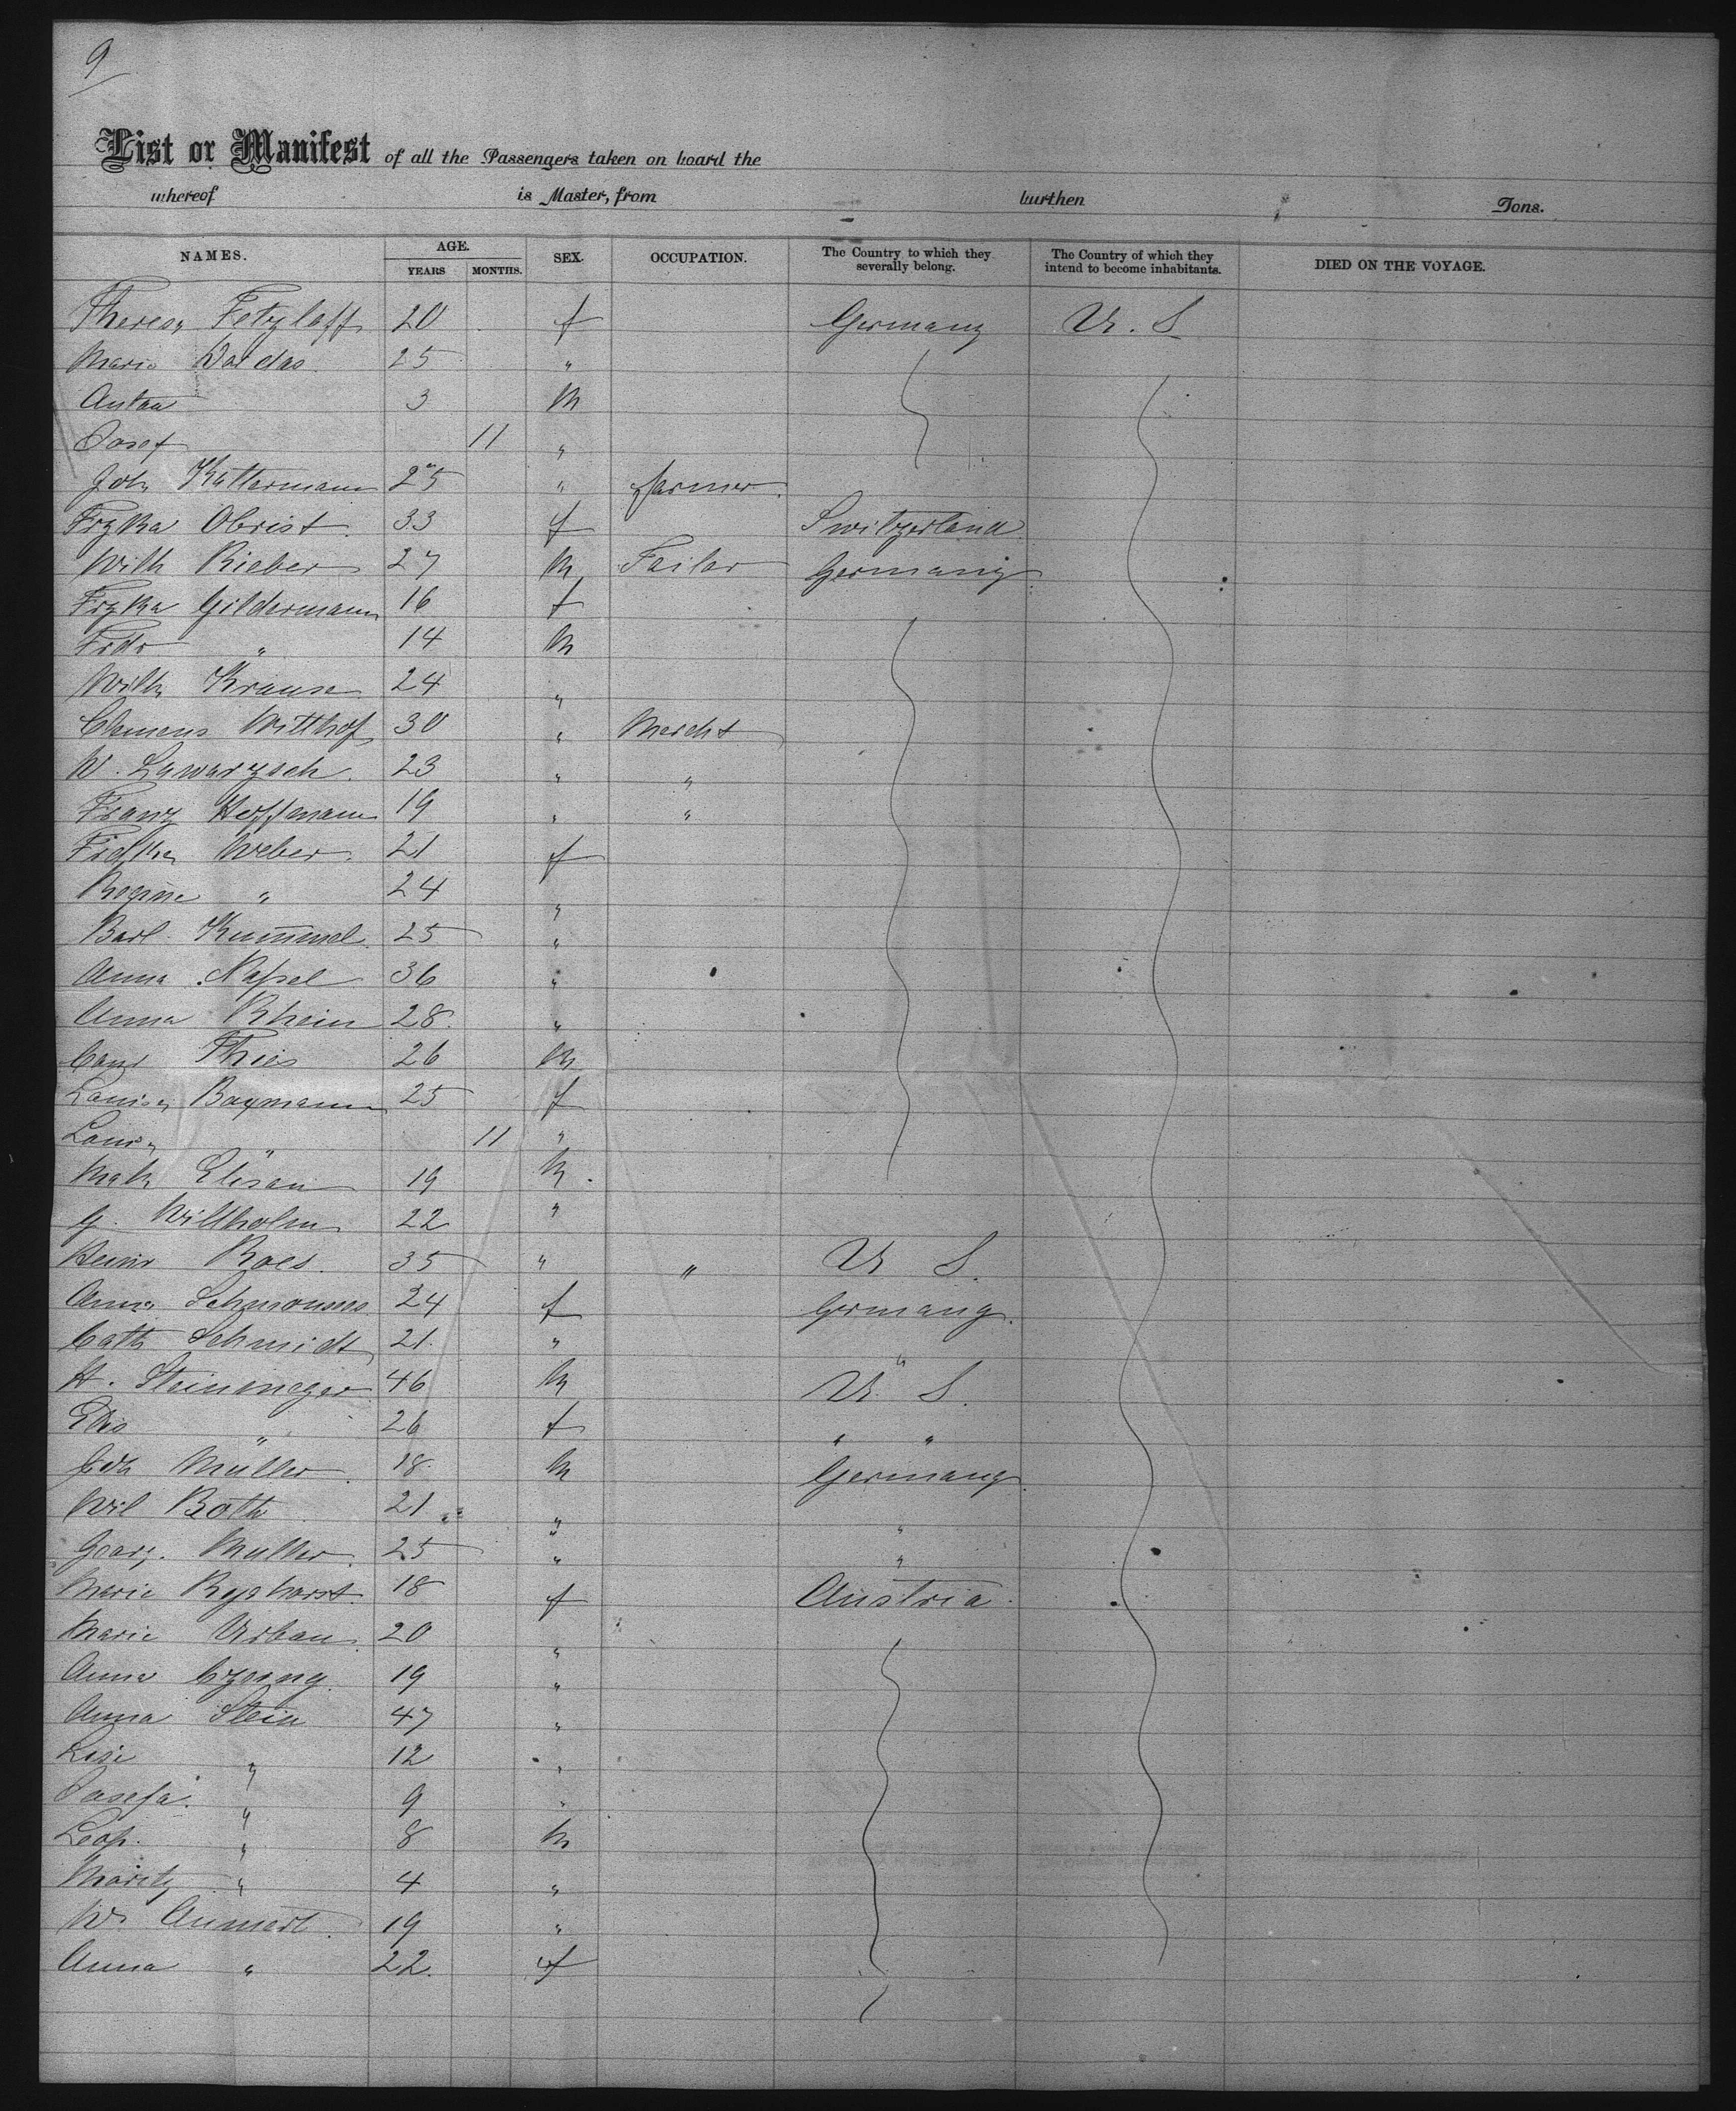 9
List or Manifest of all the Passengers taken on board the
whereof is Master, from burthen Tons.
NAMES. AGE. YEARS MONTHS. SEX. OCCUPATION. The Country to which they severally belong. The Country of which they intend to become inhabitants. DIED ON THE VOYAGE.
Theresa Tetzlaff 20 f Germany U. S
Marie 25 "
Anton 3 M
Josef 11 "
Joh Kattermann 25 " farmer
Frzka Obrist 33 f Switzerland
Wilh Rieber 27 M Tailor Germany
Frzka Gildermann 16 f
Frdr " 14 M
Wilh Krause 24 "
Clemens Witthof 30 " Mercht
W. Lawarzsch 23 " "
Franz Hoffmann 19 " "
Weber 21 f
Regine " 24 "
Barb Kummel 25 "
Anna Nassel 36 "
Anna Rhein 28 "
Conr Thies 26 M
Louisa Baymann 25 f
Louisa " 11 "
Math 19 M
G. Willholm 22 "
Heinr Roes 35 " " U S.
Anna 24 f Germany
Cath Schmidt 21 " "
H. Steinmeyer 46 M U. S.
Elis " 26 f " "
Joh Müller 18 M Germany
Wil Both 21 " "
Georg. Muller 25 " "
Marie 18 f Austria
Marie Urban 20 "
Anna Czerny 19 "
Anna Stein 47 "
Lisi " 12 "
Josefa " 9 "
Leop. " 8 M
Moritz " 4 "
W. 19 "
Anna " 22 f